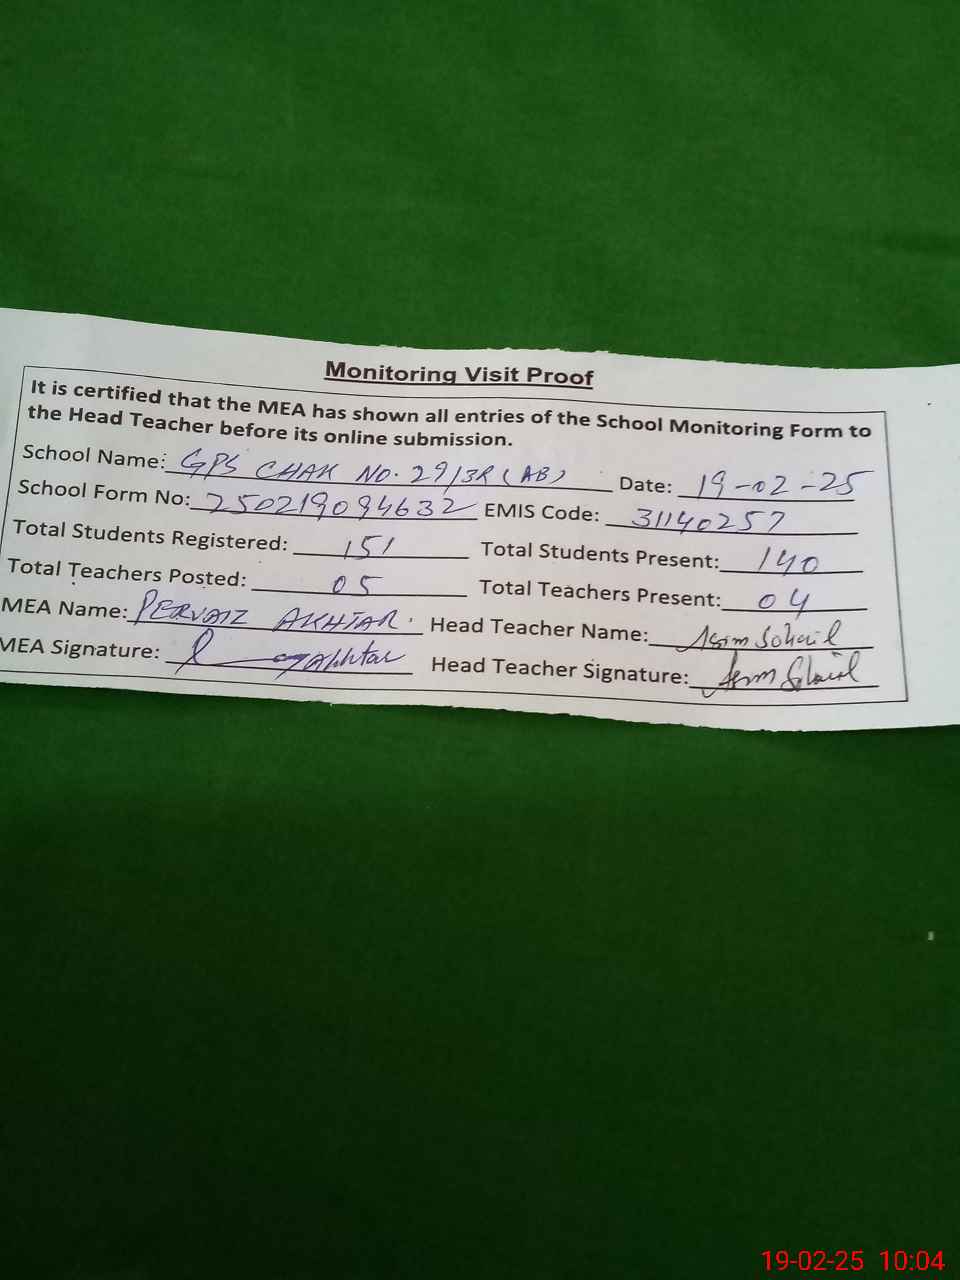 Monitoring Visit Proof
It is certified that the MEA has shown all entries of the School Monitoring Form to
the Head Teacher before its online submission.
School Name: GPS CHAK NO. 29/3R (AB) Date: 19-02-25
School Form No: 250219094632 EMIS Code: 31140257
Total Students Registered: 151 Total Students Present: 140
Total Teachers Posted: 05 Total Teachers Present: 04
MEA Name: PERVAIZ AKHTAR. Head Teacher Name: Asim Sohail
MEA Signature: Akhtar Head Teacher Signature: Asim Sohail
19-02-25 10:04